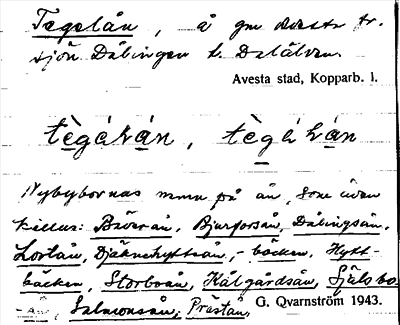 Tegelån, å gm Avesta fr.
sjön Dålingen t. Dalälven.
Avesta stad, Kopparb. l.
tègàån, tègà ån
Nybybornas namn på ån, som även
kallas: Bäverån, Bjurforsån, Dålingsån,
Lortån, Djäknehytteån, - bäcken, Hytt-
bäcken, Storboån, Kålgårdsån, Själsbo-
- ån, Salmonsån, Prästån,
G. Qvarnström 1943.